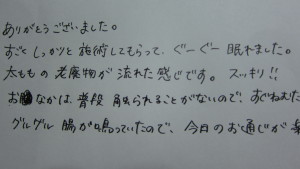 ありがとうございました。
すごくしっかりと施術してもらって、ぐーぐー眠れました。
太ももの老廃物が流れた感じです。スッキリ!!
おなかは、普段触られることがないので、
グルグル腸が鳴っていたので、今日のお通じが楽